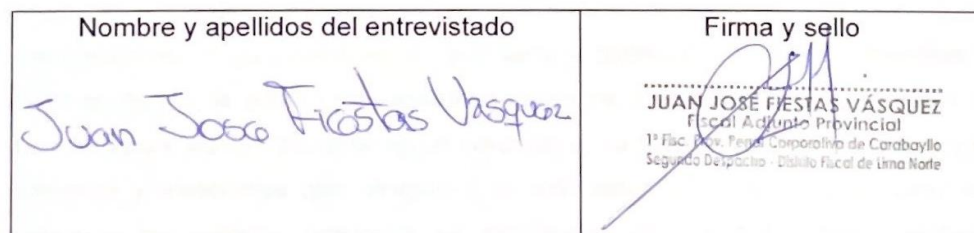 Nombre y apellidos del entrevistado
Firma y sello
Juan Jose Fiestas Vasquez
JUAN JOSÉ FIESTAS VÁSQUEZ
Fiscal Adjunto Provincial
1ª Fisc. Prov. Penal Corporativa de Carabayllo
Segundo Despacho - Distrito Fiscal de Lima Norte